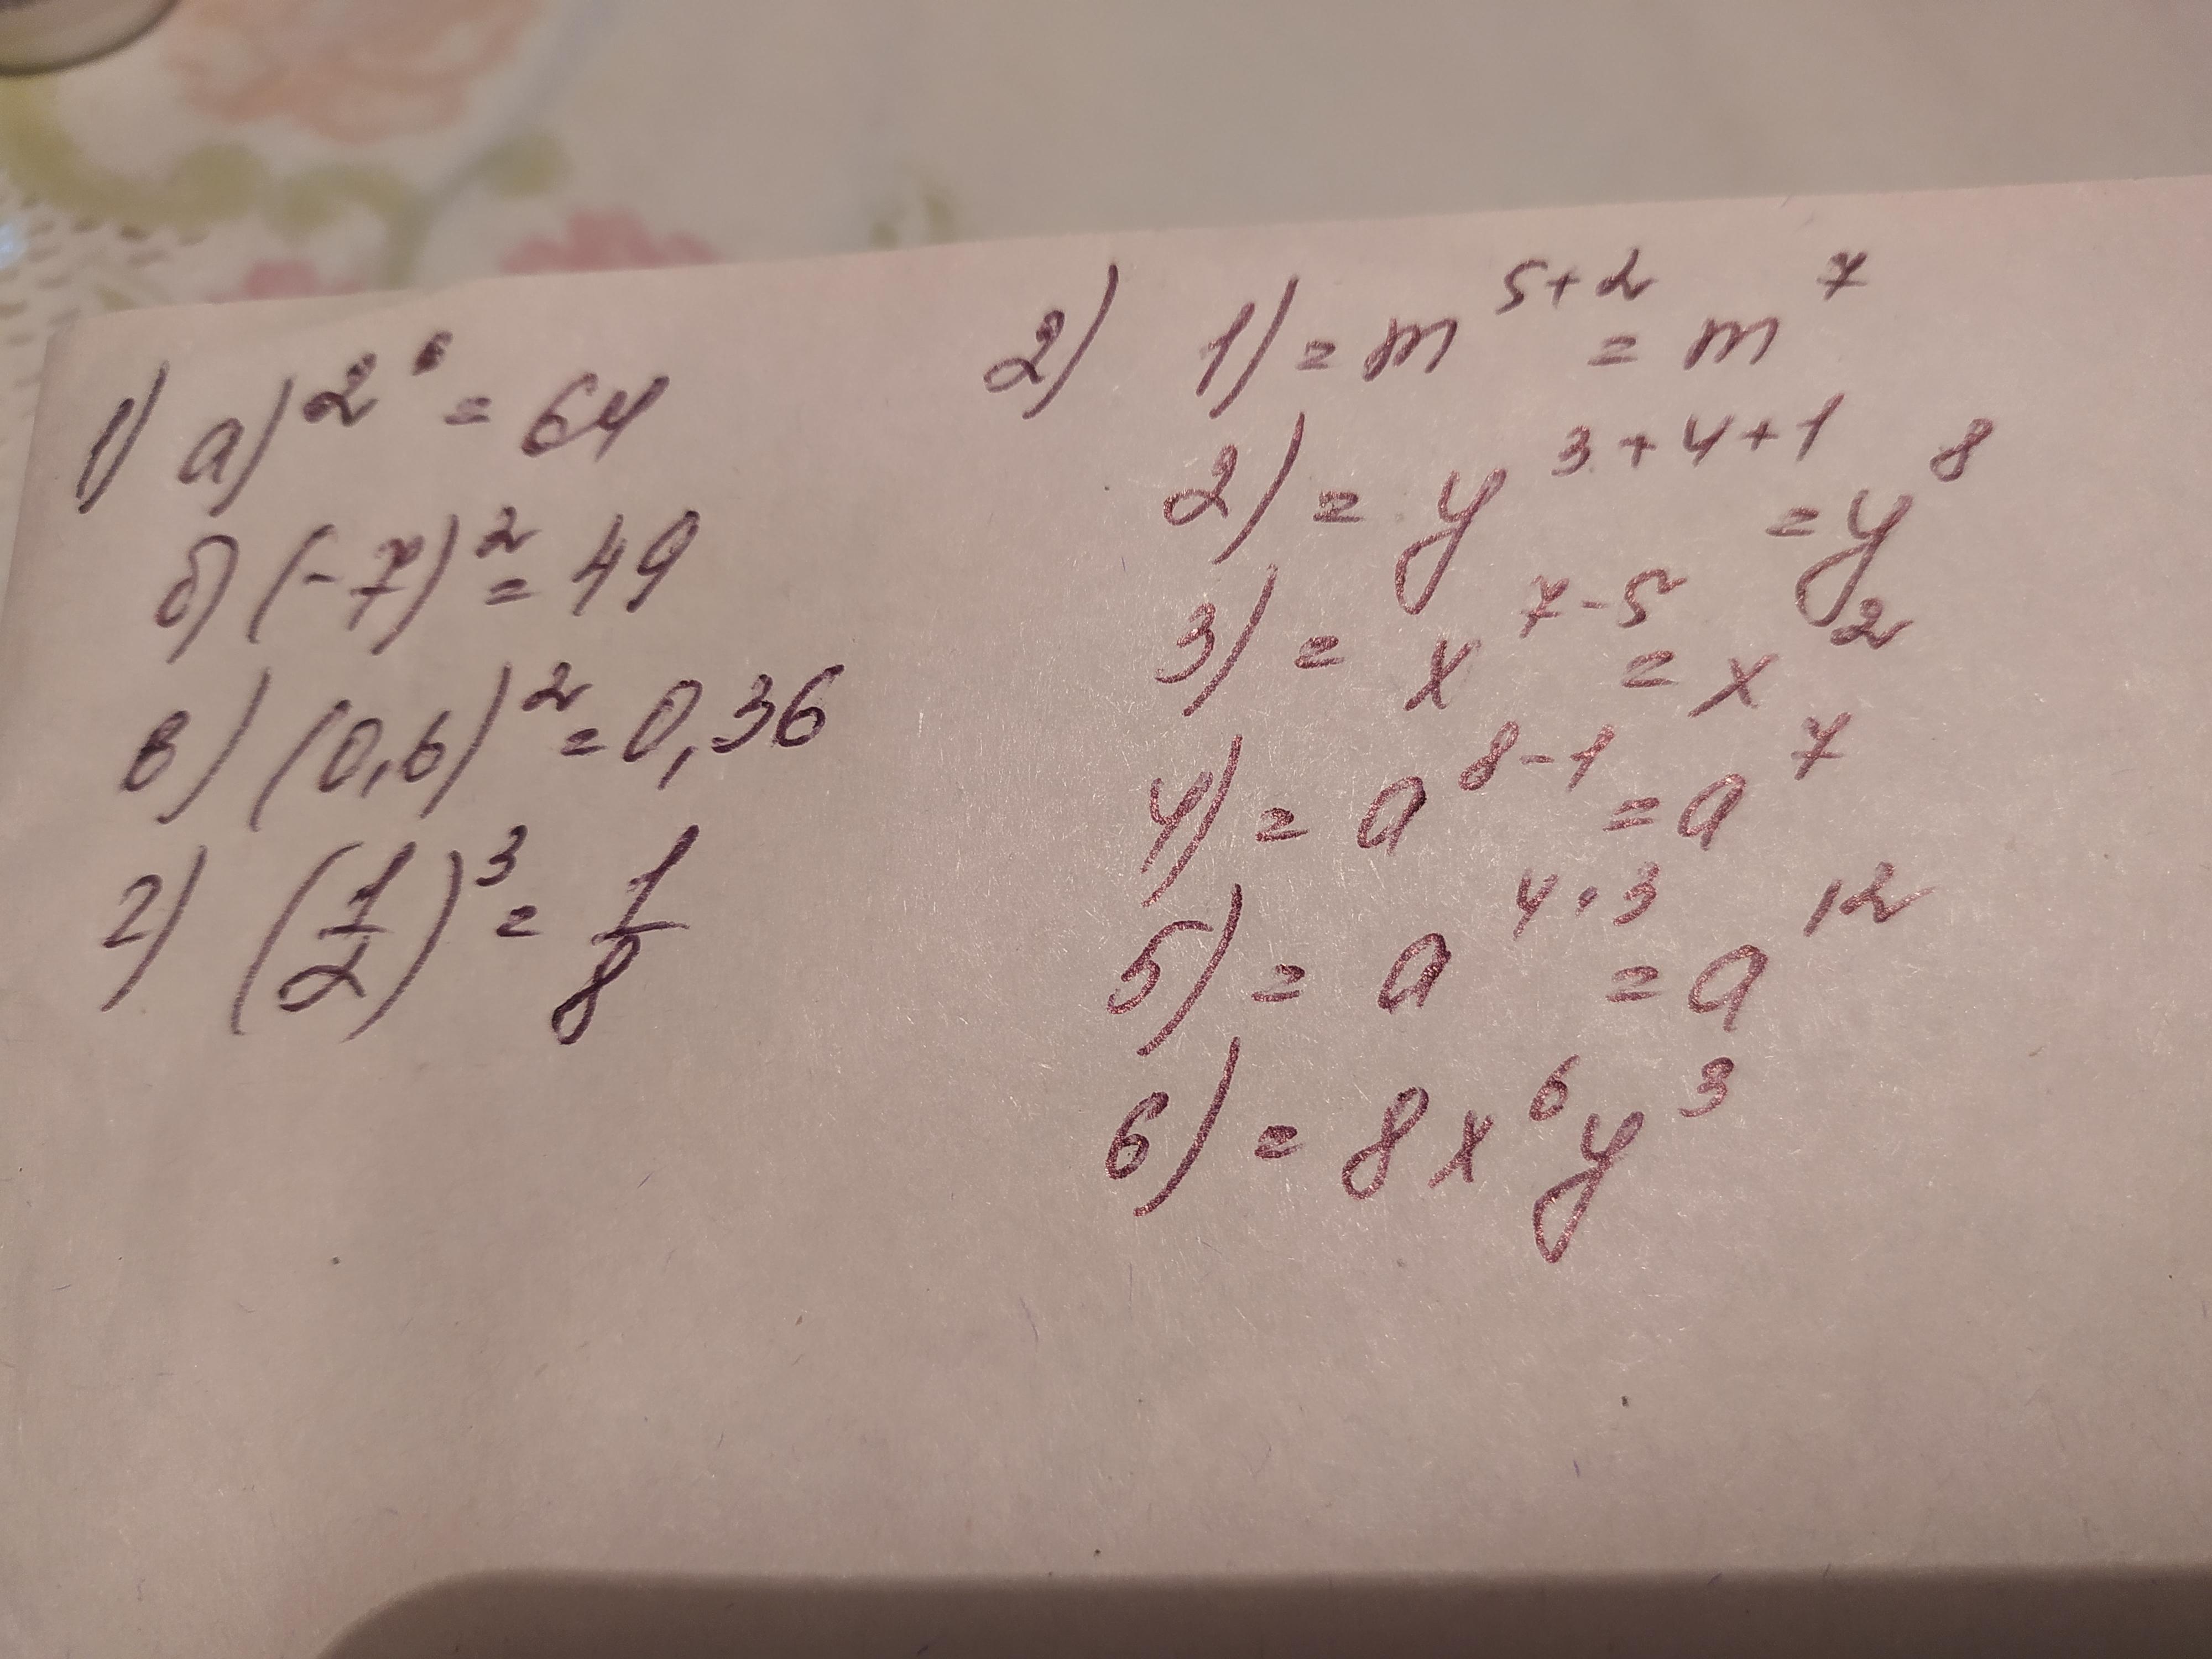 1) а) 2⁶ = 64
б) (-7)² = 49
в) (0,6)² = 0,36
г) (1/2)³ = 1/8
2) 1) = m⁵⁺² = m⁷
2) = y³⁺⁴⁺¹ = y⁸
3) = x⁷⁻⁵ = x²
4) = a⁸⁻¹ = a⁷
5) = a⁴˙³ = a¹²
6) = 8x⁶y³